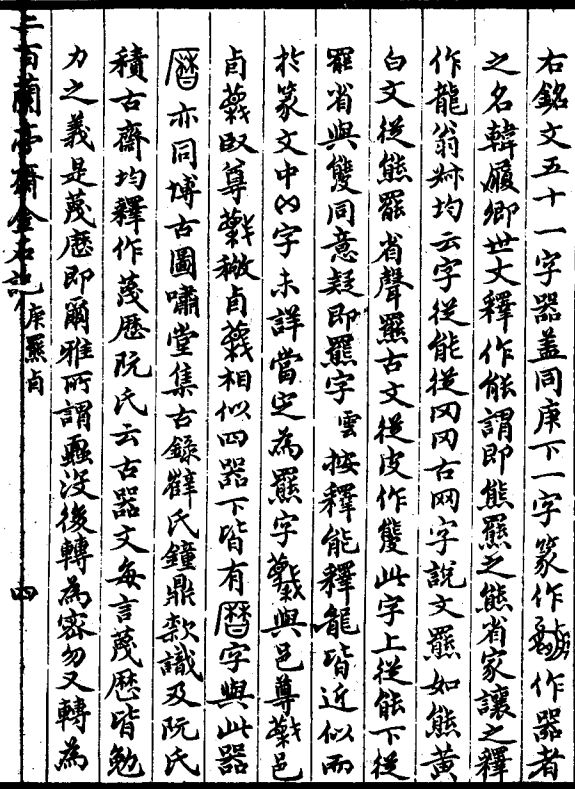 右銘文五十一字器蓋同庚下一字篆作作器者
之名韓履卿世丈釋作能謂即熊羆之熊省家讓之釋
作龍翁叔均云字從能從冈冈古网字說文羆如熊黃
白文從熊罷省聲羆古文從皮作此字上從能下從
罷省與同意疑即羆字 雲按釋能釋龍皆近似而
於篆文中字未詳當定為羆字與邑尊邑
卣臤尊卣相似四器下皆有曆字與此器
曆亦同博古圖嘯堂集古錄薛氏鐘鼎款識及阮氏
積古齋均釋作蔑歷阮氏云古器文每言蔑歷皆勉
力之義是蔑歷即爾雅所謂沒後轉為密勿又轉為
二百蘭亭齋金石記 庚羆卣 四